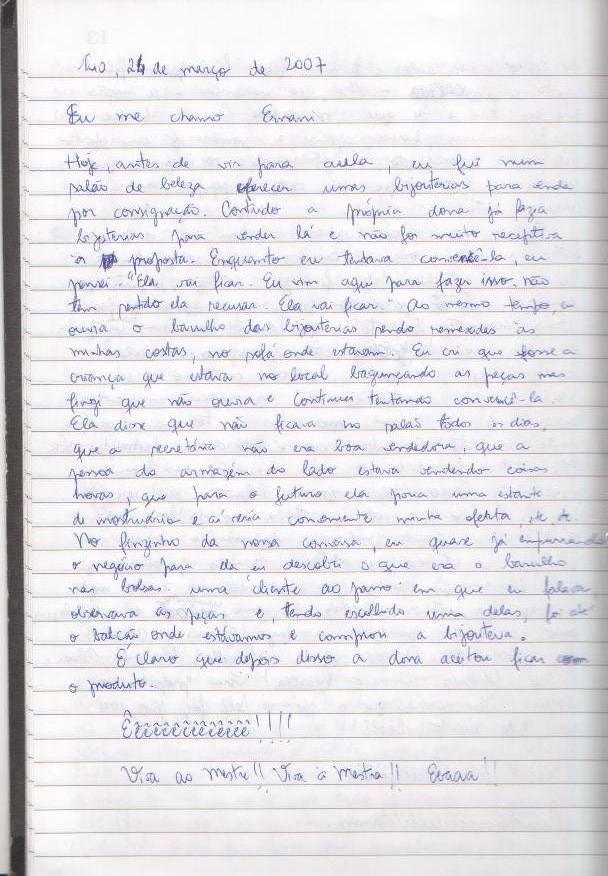 Rio, 24 de março de 2007
Eu me chamo Ernani.
Hoje, antes de vir para aula, eu fui num
salão de beleza oferecer umas bijouterias para venda
por consignação. Contudo a própria dona já fazia
bijuterias para vender lá e não foi muito receptiva
à proposta. Enquanto eu tentava convencê-la, eu
pensei: "Ela vai ficar. Eu vim aqui para fazer isso. não
tem sentido ela recusar. Ela vai ficar." Ao mesmo tempo,
ouvia o barulho das bijouterias sendo remexidas às
minhas costas, no sofá onde estavam. Eu cri que fosse a
criança que estava no local bagunçando as peças mas
fingi que não ouvia e continuei tentando convencê-la.
Ela disse que não ficava no salão todos os dias,
que a secretária não era boa vendedora, que a
pessoa do armazém do lado estava vendendo coisas
novas, que para o futuro ela poria uma estante
de mostruário e aí seria conveniente minha oferta,
No finzinho da nossa conversa, eu quase já empurrando
o negócio para ela eu descobri o que era o barulho
nas bolsas: uma cliente ao passo em que eu falava,
observava as peças e, tendo escolhido uma delas, foi até
o balcão onde estávamos e comprou a bijouteria.
É claro que depois disso a dona aceitou ficar com
o produto.
Êêêêêêêêêêêê!!!!
Viva ao mestre!! Viva à mestra!! Evaaa!!